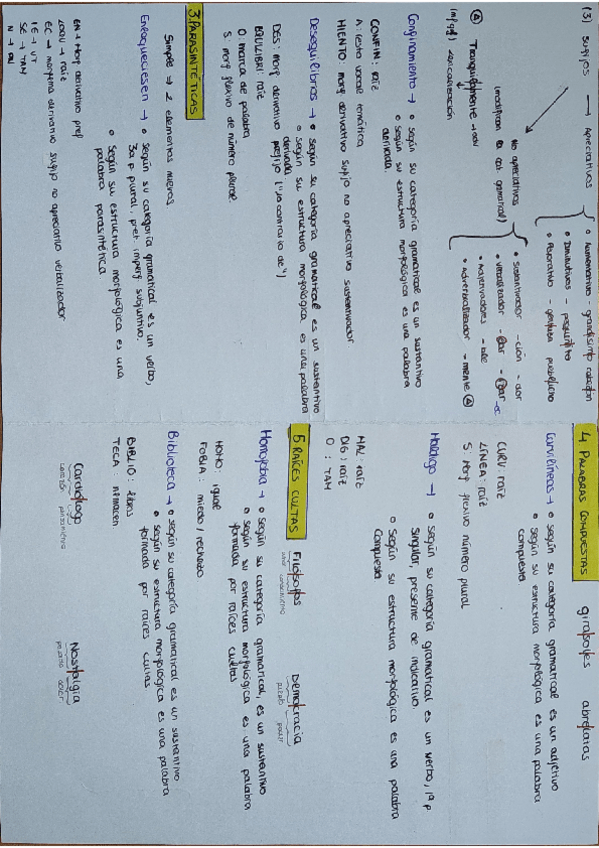 (3) sufijos → Apreciativos
• Aumentativo grandísimo cabezón
• Diminutivos - poquito
• Peyorativo - gentuza pueblucho
No apreciativos
(modifican la cat. gramatical)
• Sustantivador -ción -dor
• Verbalizador - ear - izar
• Adjetivadores - ble
• Adverbializador - mente Ⓐ
Ⓐ Tranquilamente → adv
Confinamiento → • según su categoría gramatical es un sustantivo
• según su estructura morfológica es una palabra
derivada.
CONFIN: raíz
A: (esta vocal temática
MIENTO: morf derivativo sufijo no apreciativo sustantivador
Desequilibrios → • según su categoría gramatical es un sustantivo
• según su estructura morfológica es una palabra
derivada
DES: morf derivativo prefijo ("lo contrario de")
EQUILIBRI: raíz
O: marca de palabra
S: morf flexivo de número plural.
3. PARASINTÉTICAS
Simple → 2 elementos nuevos
Enloqueciesen → • según su categoría gramatical es un verbo,
3a p plural, pret. imperf subjuntivo.
• según su estructura morfológica es una
palabra parasintética
EN → Morf derivativo pref
LOQU → raíz
EC → morfema derivativo sufijo no apreciativo verbalizador
IE → VT
SE → TAM
N → PN
4 PALABRAS COMPUESTAS
girasoles abrelatas
Curvilíneas → • según su categoría gramatical es un adjetivo
• según su estructura morfológica es una palabra
compuesta.
CURV: raíz
LÍNEA: raíz
S: Morf flexivo número plural
Maldigo → • según su categoría gramatical es un verbo, 1ª p
singular, presente de indicativo.
• según su estructura morfológica es una palabra
compuesta
MAL: raíz
DIG: raíz
O: TAM
5 RAÍCES CULTAS
Filósofos
Demokracia
pueblo poder
Homofobia → • según su categoría gramatical, es un sustantivo
• según su estructura morfológica es una palabra
formada por raíces cultas
HOMO: igual
FOBIA: miedo / rechazo
Biblioteca → • según su categoría gramatical es un sustantivo
• según su estructura morfológica es una palabra
formada por raíces cultas
BIBLIO: libros
TECA: almacén
Cardiólogo
Nostalgia